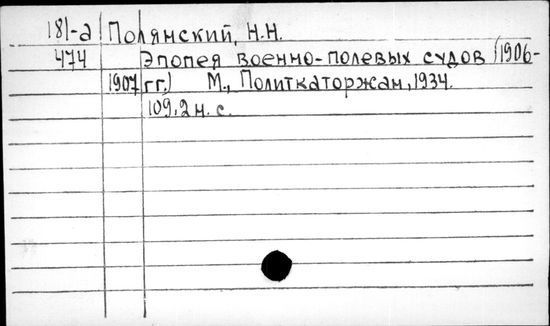 181-а Полянский, Н.Н.
474 Эпопея военно-полевых судов (1906-
1907 гг.) М., Политкаторжан, 1934.
109,2 н. с.